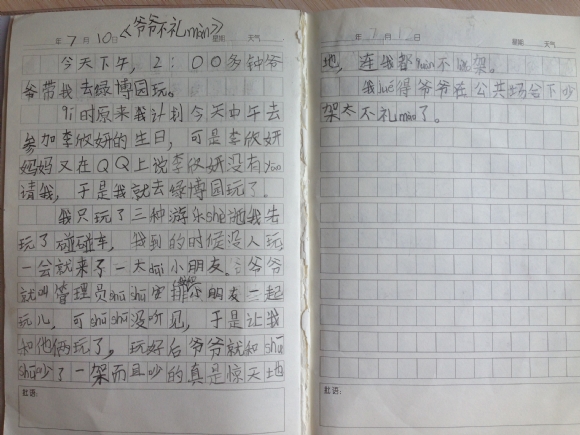 《爷爷不礼màn》
年 7月10日 星期 天气
今天下午，2：00多钟爷
爷带我去绿博园玩。
时原来我计划今天中午去
参加李欣妍的生日，可是李欣妍
妈妈又在QQ上说李欣妍没有yāo
请我，于是我就去绿博园玩了。
我只玩了三种游乐shè我先
玩了碰碰车，我到的时候没人玩
一会就来了一大小朋友。爷爷
就叫管理员shū shū安排小朋友一起
玩儿，可shū shū没听见，于是让我
和他俩玩了，玩好后爷爷就和shū
shū吵了一架而且吵的真是惊天地
批语：
年 月 日 星期 天气
地，连我都quàn不架。
我jué得爷爷在公共场合下吵
架太不礼mào了。
批语：